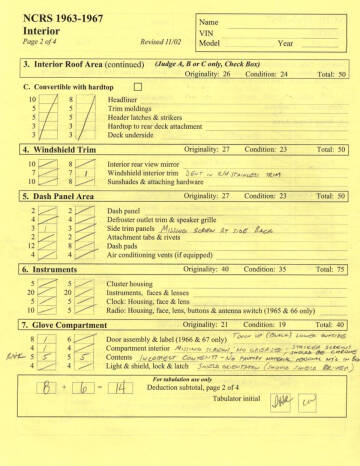 NCRS 1963-1967
Interior
Page 2 of 4 Revised 11/02
Name
VIN
Model Year
3. Interior Roof Area (continued) (Judge A, B or C only, Check Box)
Originality: 26 Condition: 24 Total: 50
C. Convertible with hardtop
10 8 Headliner
5 5 Trim moldings
5 5 Header latches & strikers
3 3 Hardtop to rear deck attachment
3 3 Deck underside
4. Windshield Trim Originality: 27 Condition: 23 Total: 50
10 8 Interior rear view mirror
7 7 1 Windshield interior trim DENT IN R/H STAINLESS TRIM
10 8 Sunshades & attaching hardware
5. Dash Panel Area Originality: 27 Condition: 23 Total: 50
2 2 Dash panel
4 4 Defroster outlet trim & speaker grille
3 1 3 Side trim panels MISSING SCREW AT SIDE BACK
2 2 Attachment tabs & rivets
12 8 Dash pads
4 4 Air conditioning vents (if equipped)
6. Instruments Originality: 40 Condition: 35 Total: 75
5 5 Cluster housing
20 20 Instruments, faces & lenses
5 5 Clock: Housing, face & lens
10 5 Radio: Housing, face, lens, buttons & antenna switch (1965 & 66)
7. Glove Compartment Originality: 21 Condition: 19 Total: 40
8 1 6 Door assembly & label (1966 & 67 only) TOUCH UP (BLACK) LOWER
4 1 4 Compartment interior MISSING SCREW, STRIKER SCREWS SHOULD BE CHROME
5 5 5 5 Contents INCORRECT CONTENTS - NO FACTORY MATERIAL PERSONAL MT'L IN
4 4 Light & shield, lock & latch SHIELD ORIENTATION (SHOULD SHIELD DRIVER)
For tabulation use only
8 + 6 = 14 Deduction subtotal, page 2 of 4
Tabulator initial